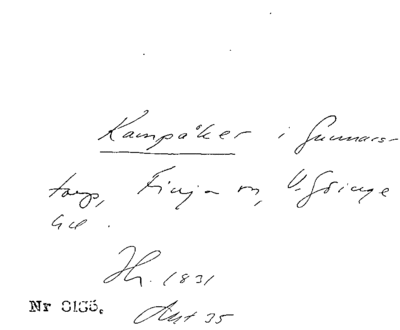 Kampåker i Gunnars-
torp, Finja sn, V. Göinge
hd.
Hs. 1831
Nr 8135.